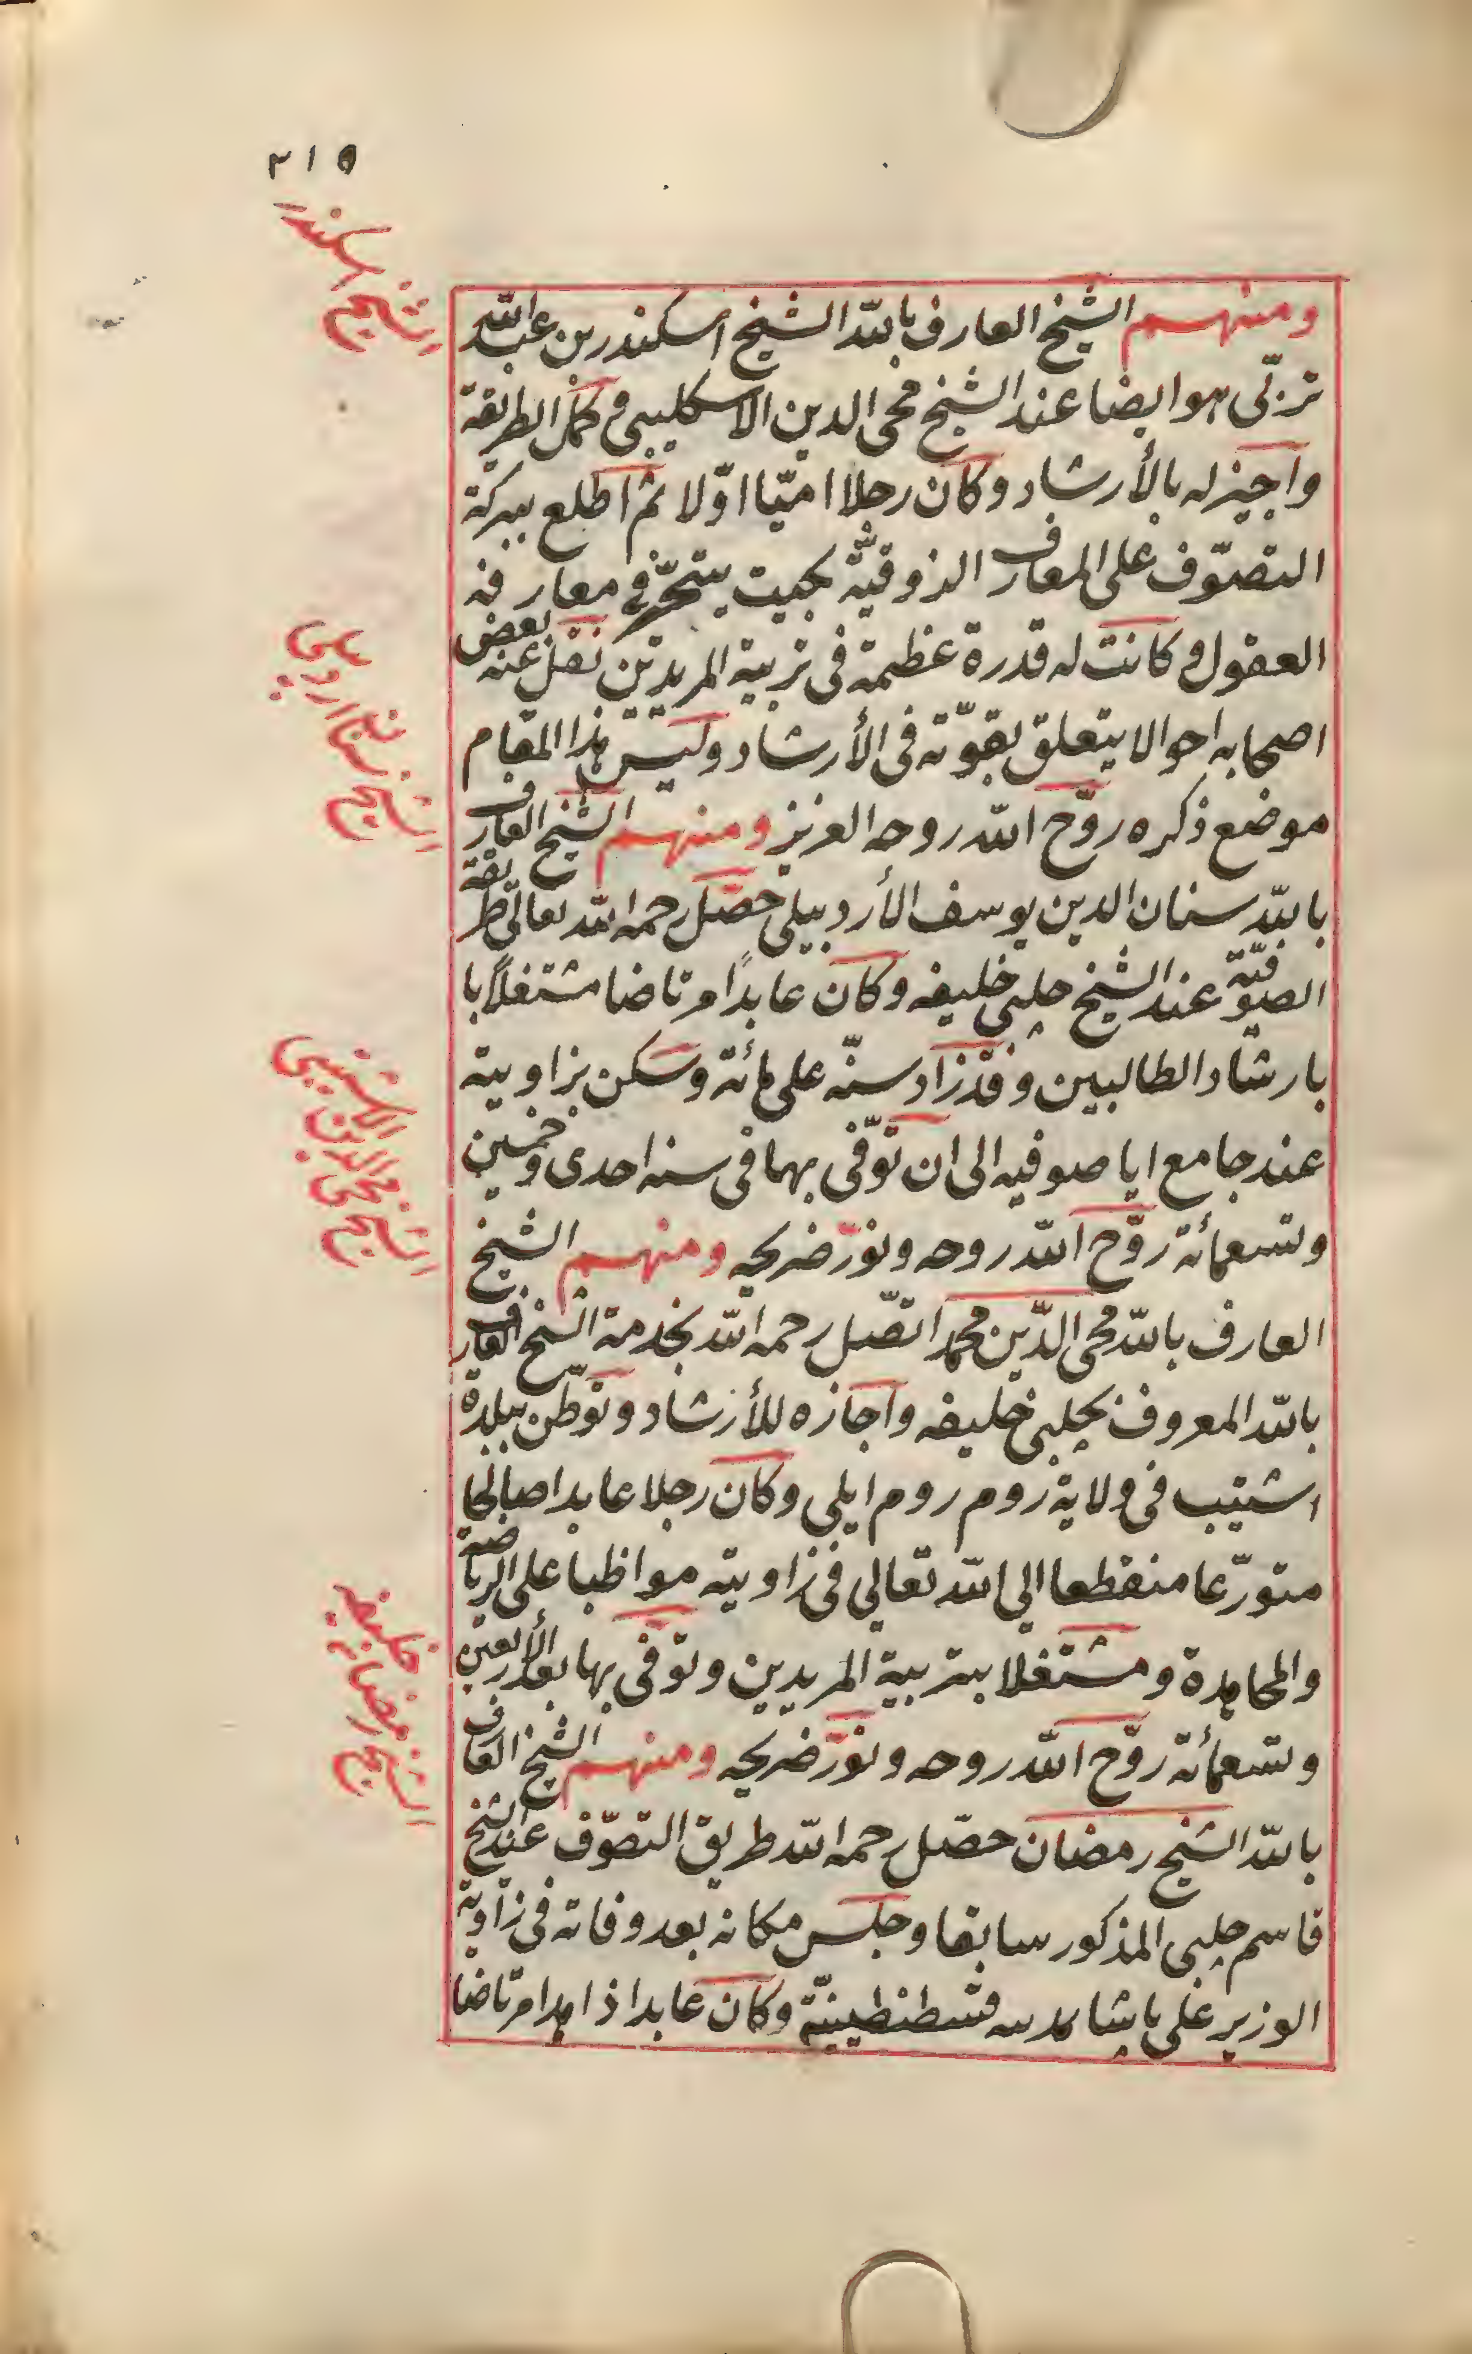 ٣١٥
الشيخ اسكندر
ومنهم الشيخ العارف بالله الشيخ اسكندر بن عبد الله
تربّى هو ايضا عند الشيخ محى الدين الاسكليبى وكمّل الطريقة
واجيز له بالأرشاد وكان رجلا اميّا اوّلا ثم اطلع ببركة
التصوّف على المعارف الذوقيّة بحيث يتحيّر فى معارفه
العقول وكانت له قدرة عظيمة فى تربية المريدين نقل عنه بعض
اصحابه احوالا يتعلق بقوّته فى الأرشاد وليس هذا المقام
موضع ذكره روّح الله روحه العزيز ومنهم الشيخ العارف
الشيخ سنان اردبيلى
بالله سنان الدين يوسف الأردبيلى حصّل رحمه الله تعالى طريقة
الصوفيّة عند الشيخ چلبى خليفه وكان عابدًا مرتاضا مشتغلاً با
بارشاد الطالبين وقد زاد سنّه على مائة وسكن بزاوية
عند جامع ايا صوفيه الى ان توّفى بها فى سنه احدى وخمسين
وتسعمائة روّح الله روحه ونوّر ضريحه ومنهم الشيخ
الشيخ محى الدين الاشتيبى
العارف بالله محى الدّين محمد اتصّل رحمه الله بخدمة الشيخ العارف
بالله المعروف بچلبى خليفه واجازه للأرشاد وتوطّن ببلدة
اشتيب فى ولاية روم روم ايلى وكان رجلا عابدا صالحا
متورّعا منقطعا الى الله تعالى فى زاويته مواظبا على الرياضة
والمجاهدة ومشتغلا بتربية المريدين وتوفى بها بعد الأربعين
وتسعمائة روّح الله روحه ونوّر ضريحه ومنهم الشيخ العارف
الشيخ رمضان خليفه
بالله الشيخ رمضان حصّل رحمه الله طريق التصوّف عند الشيخ
قاسم چلبى المذكور سابقا وجلس مكانه بعد وفاته فى زاوية
الوزير على پاشا بمدينه قسطنطينيّة وكان عابدا ذاهدا مرتاضا